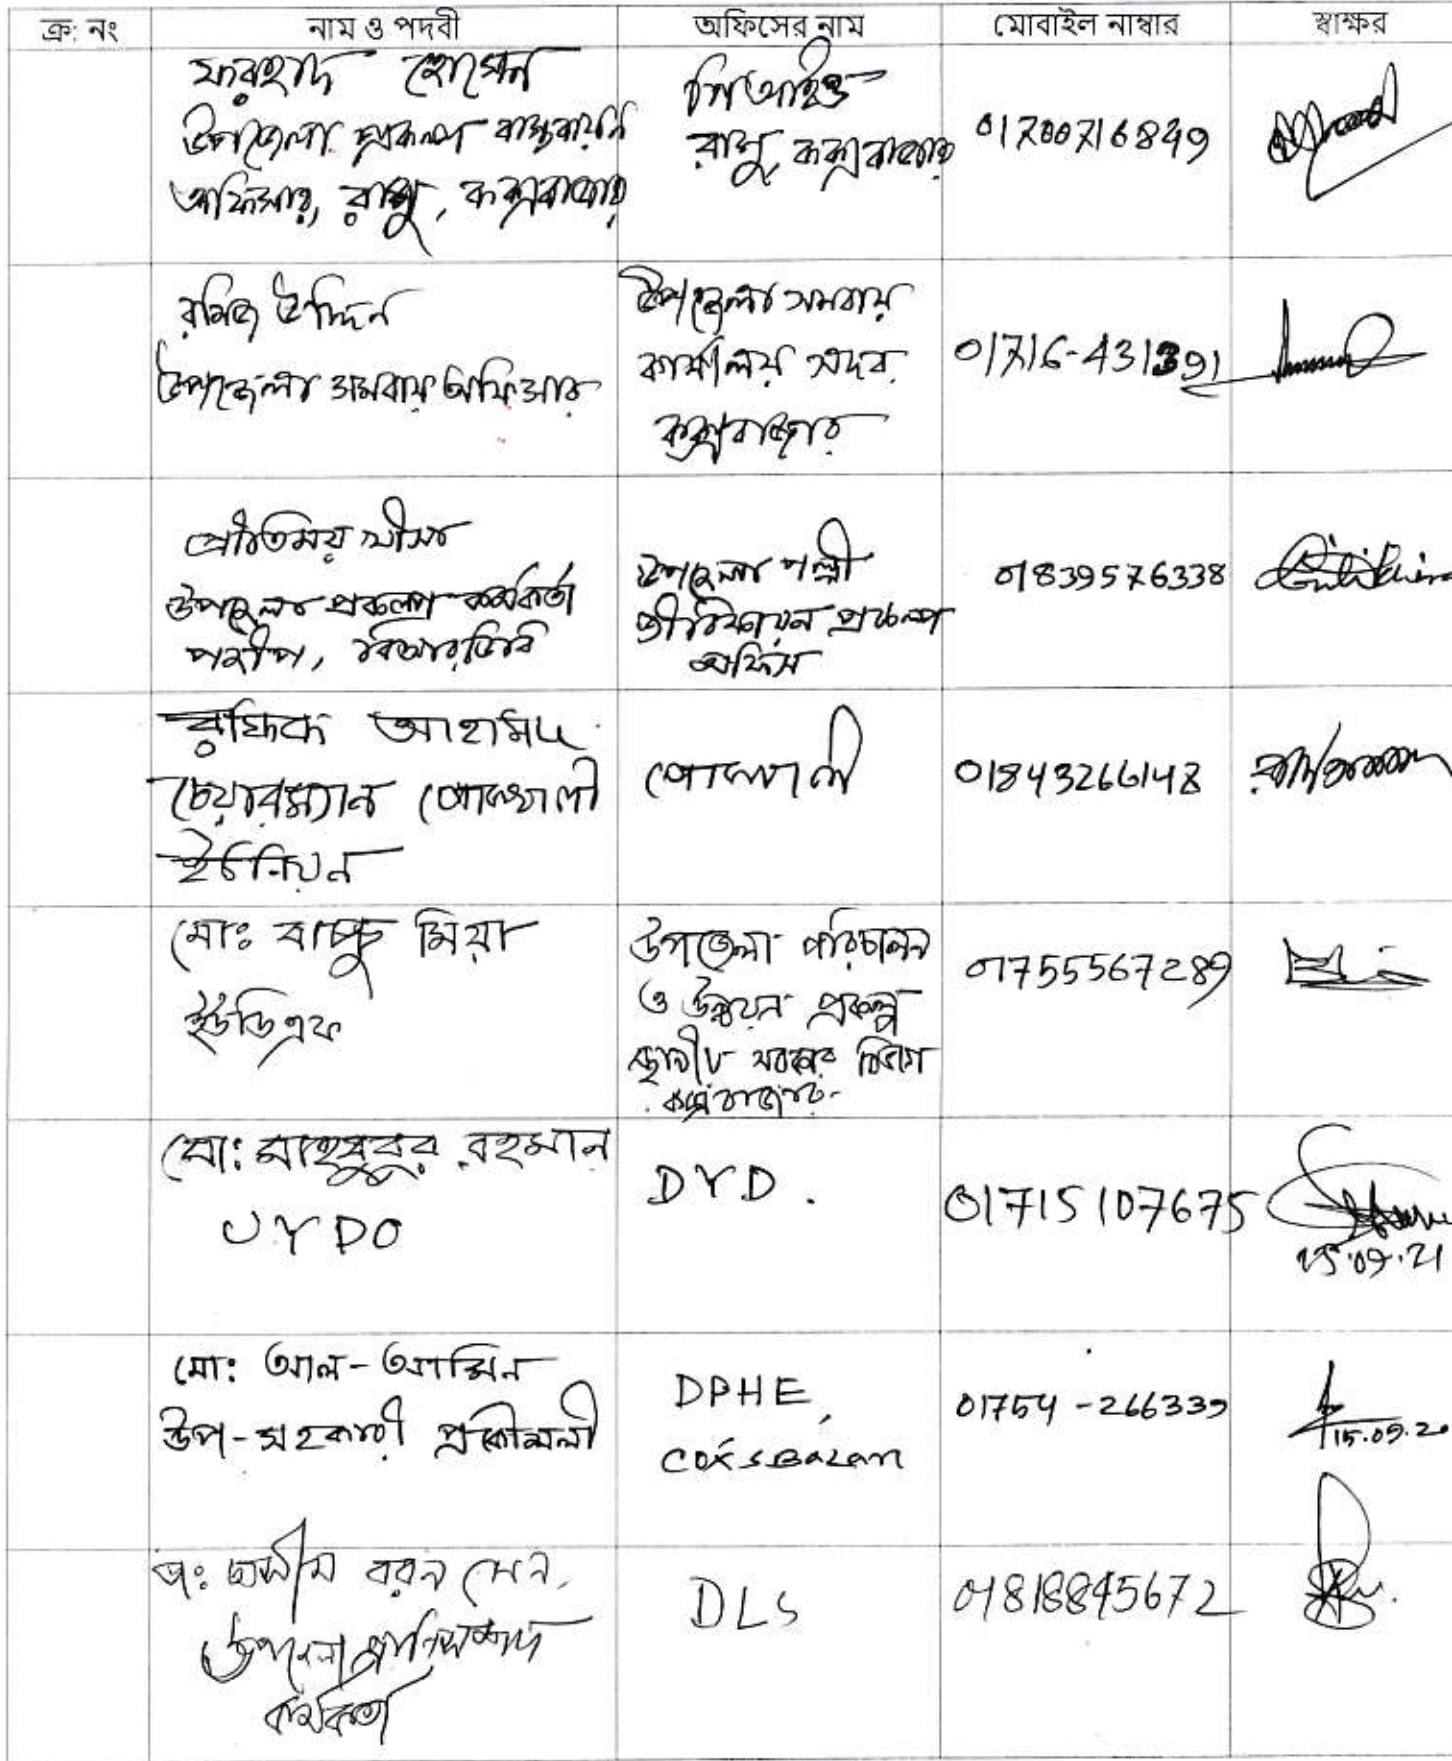 ক্র: নং নাম ও পদবী অফিসের নাম মোবাইল নাম্বার স্বাক্ষর
ফরহাদ হোসেন
উপজেলা প্রকল্প বাস্তবায়ন
অফিসার, রামু, কক্সবাজার
পিআইও
রামু, কক্সবাজার
01700716849
রমিজ উদ্দিন
উপজেলা সমবায় অফিসার
উপজেলা সমবায়
কার্যালয় সদর
কক্সবাজার
01716-431391
প্রীতিময়
উপজেলা প্রকল্প কর্মকর্তা
পজীপ, বিআরডিবি
উপজেলা পল্লী
জীবিকায়ন প্রকল্প
অফিস
01839576338
রফিক আহামদ
চেয়ারম্যান পোকখালী
ইউনিয়ন
পোকখালী
01843266148
মো: বাচ্চু মিয়া
ইউডিএফ
উপজেলা পরিচালন
ও উন্নয়ন প্রকল্প
স্থানীয় সরকার বিভাগ
কক্সবাজার
01755567289
মো: মাহবুবুর রহমান
UYDO
DYD.
01715107675
15.09.21
মো: আল-আমিন
উপ-সহকারী প্রকৌশলী
DPHE,
cox's Bazar
01754-266339
15.09.20
ডা: অসীম বরন সেন,
উপজেলা প্রাণিসম্পদ
কর্মকর্তা
DLS
01818845672